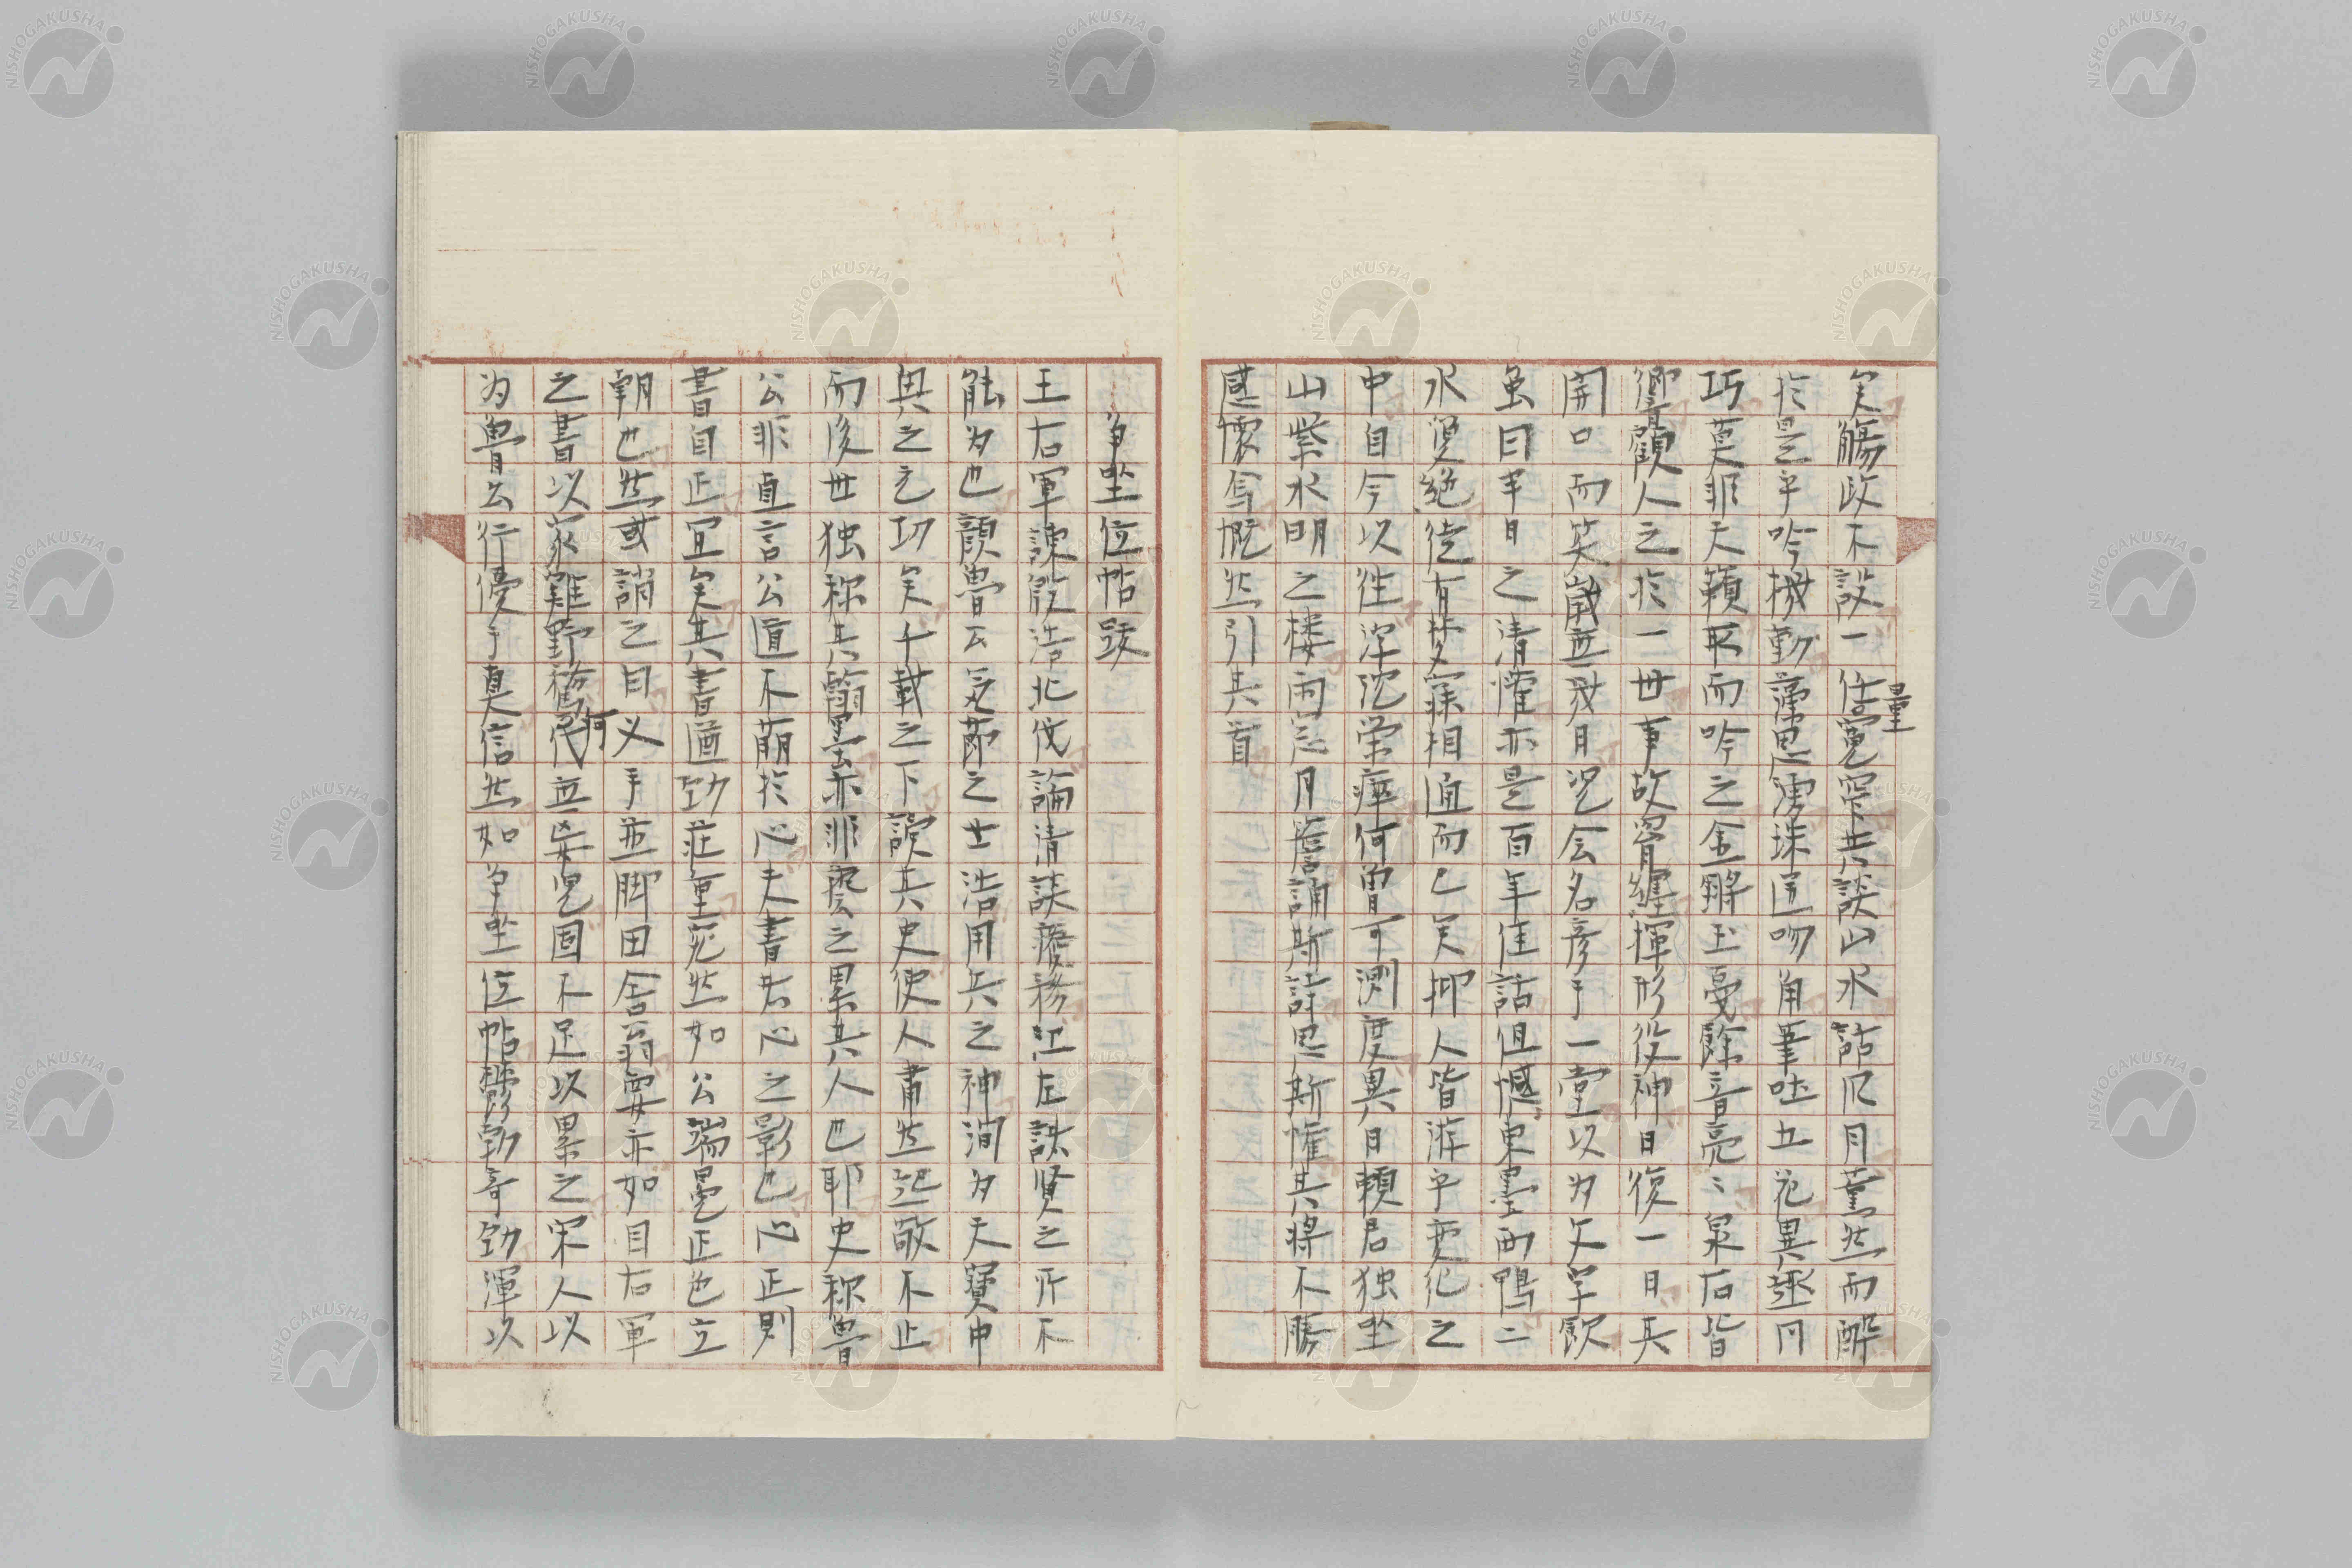 矣觴政不設一任量寛窄共談山水話风月薫然而酔
於是乎吟機勤藻思湧珠迸吻角筆吐五花異逐円
巧莫非天籟取而吟之金鏘玉戛餘音亮〻泉石皆
響顧人之於一世事故胃纏揮形役神日復一日其
開口而笑歳無幾日况会名彦于一堂以为文字飲
虽曰半日之清懽亦是百年佳話但憾東墨西鴨二
水夐絶徒有梦寐相通而已矣抑人皆游乎变化之
中自今以往浮沈栄瘁何曽可測度異日頼君独坐
山紫水明之楼雨窓月簷誦斯詩思斯懽其將不勝
感懐写慨然引其首
争坐位帖跋
王右軍諌殷浩北伐論清談癈務江左諸賢之所不
能为也顔魯公死節之士浩用兵之神洞为天寶中
興之元功矣千載之下読其史使人肅然起敬不止
而後世独称其翰墨亦非藝之累其人也耶史称魯
公非直言公道不萠於心夫書者心之影也心正則
書自正宜矣其書遒劲荘重宛然如公端冕正色立
朝也然或誚之曰乂手並脚田舎翁耍亦如目右軍
之書以家雞野鶩何伐並呉児固不足以累之宋人以
为魯公行優于真信然如争坐位帖欝勃奇劲渾以